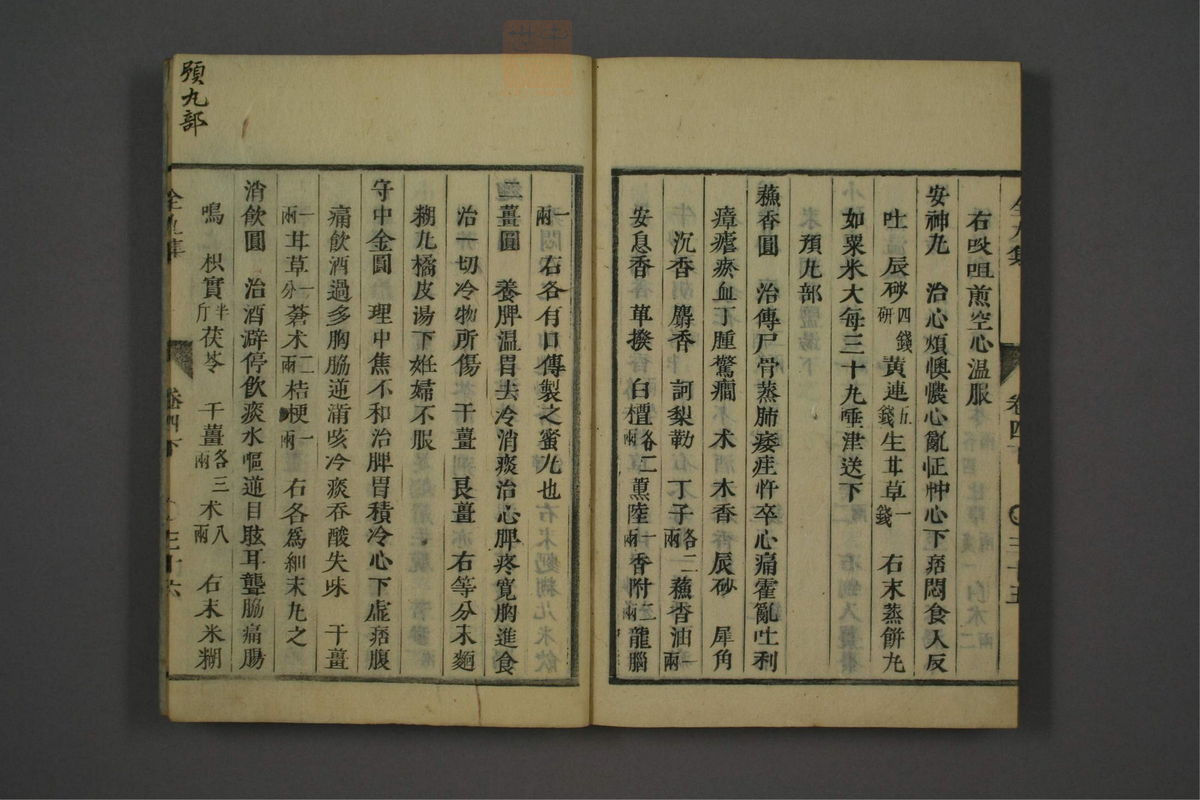 右㕮咀煎空心温服
安神丸　治心煩懊憹心亂怔忡心下痞悶食入反
吐　辰砂四錢研　黄連五錢　生甘草一錢　右末蒸餅丸
如粟米大每三十丸唾津送下
預丸部
蘓香圓　治傳尸骨蒸肺痿疰忤卒心痛霍亂吐利
瘴瘧瘀血丁腫驚癇　木香　辰砂　犀角
沉香　麝香　訶梨勒　丁子各二兩　蘓香油一兩
安息香　蓽撥　白檀各二兩　薫陸一兩　香附三兩　龍腦
一兩　右各有口傳製之蜜丸也
二薑圓　養脾温胃去冷消痰治心脾疼寛胸進食
治一切冷物所傷　干薑　良薑　右等分末麵
糊丸橘皮湯下姙婦不服
守中金圓　理中焦不和治脾胃積冷心下虛痞腹
痛飲酒過多胸脇逆滿咳冷痰吞酸失味　干薑
一兩　甘草一分　蒼术二兩　桔梗一兩　右各爲細末丸之
消飲圓　治酒澼停飲痰水嘔逆目眩耳聾脇痛腸
鳴　枳實半斤　茯苓　干薑各三兩　术八兩　右末米糊
卷四下
預九部
卷四下
三十五